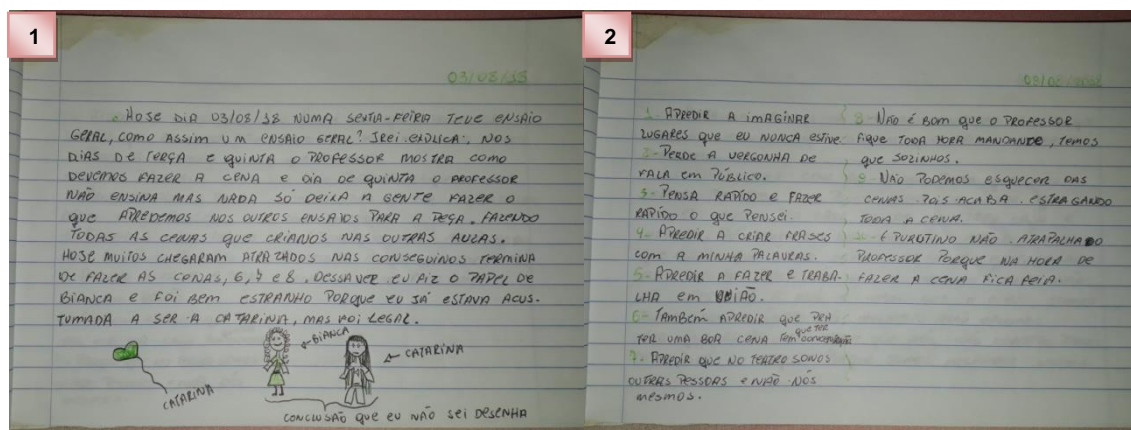 1
03/08/18
HOJE DIA 03/08/18 NUMA SEXTA-FEIRA TEVE ENSAIO
GERAL, COMO ASSIM UM ENSAIO GERAL? IREI EXPLICA, NOS
DIAS DE TERÇA E QUINTA O PROFESSOR MOSTRA COMO
DEVEMOS FAZER A CENA E DIA DE QUINTA O PROFESSOR
NÃO ENSINA MAS NADA SÓ DEIXA A GENTE FAZER O
QUE APREDEMOS NOS OUTROS ENSAIOS PARA A PEÇA. FAZENDO
TODAS AS CENAS QUE CRIANOS NAS OUTRAS AULAS.
HOJE MUITOS CHEGARAM ATRAZADOS NAS CONSEGUINOS TERMINA
DE FAZER AS CENAS, 6, 7 e 8. DESSAVEZ EU FIZ O PAPEL DE
BIANCA E FOI BEM ESTRANHO PORQUE EU JÁ ESTAVA ACUS-
TUMADA A SER A CATARINA, MAS FOI LEGAL.
←BIANCA
← CATARINA
CATARINA
CONCLUSÃO QUE EU NÃO SEI DESENHA
2
1- APREDIR A IMAGINAR
LUGARES QUE EU NUNCA ESTIVE.
2- PERDE A VERGONHA DE
FALA EM PÚBLICO.
3- PENSA RAPÍDO E FAZER
RAPÍDO O QUE PENSEI.
4- APREDIR A CRIAR FRASES
COM A MINHA PALAVRAS.
5- APREDIR A FAZER E TRABA-
LHA EM UNIÃO.
6- TAMBÉM APREDIR QUE PRA
TER UMA BOA CENA TEM QUE TER CONCENTRAÇÃO
7- APREDIR QUE NO TEATRO SOMOS
OUTRAS PESSOAS E NÃO NÓS
MESMOS.
8- NÃO É BOM QUE O PROFESSOR
FIQUE TODA HORA MANDANDE, TEMOS
QUE SOZINHOS.
9- NÃO PODEMOS ESQUECER DAS
CENAS POIS ACABA ESTRAGANDO
TODA A CENA.
10- É PUROTINO NÃO ATRAPALHADO
PROFESSOR PORQUE NA HORA DE
FAZER A CENA FICA FEIA.